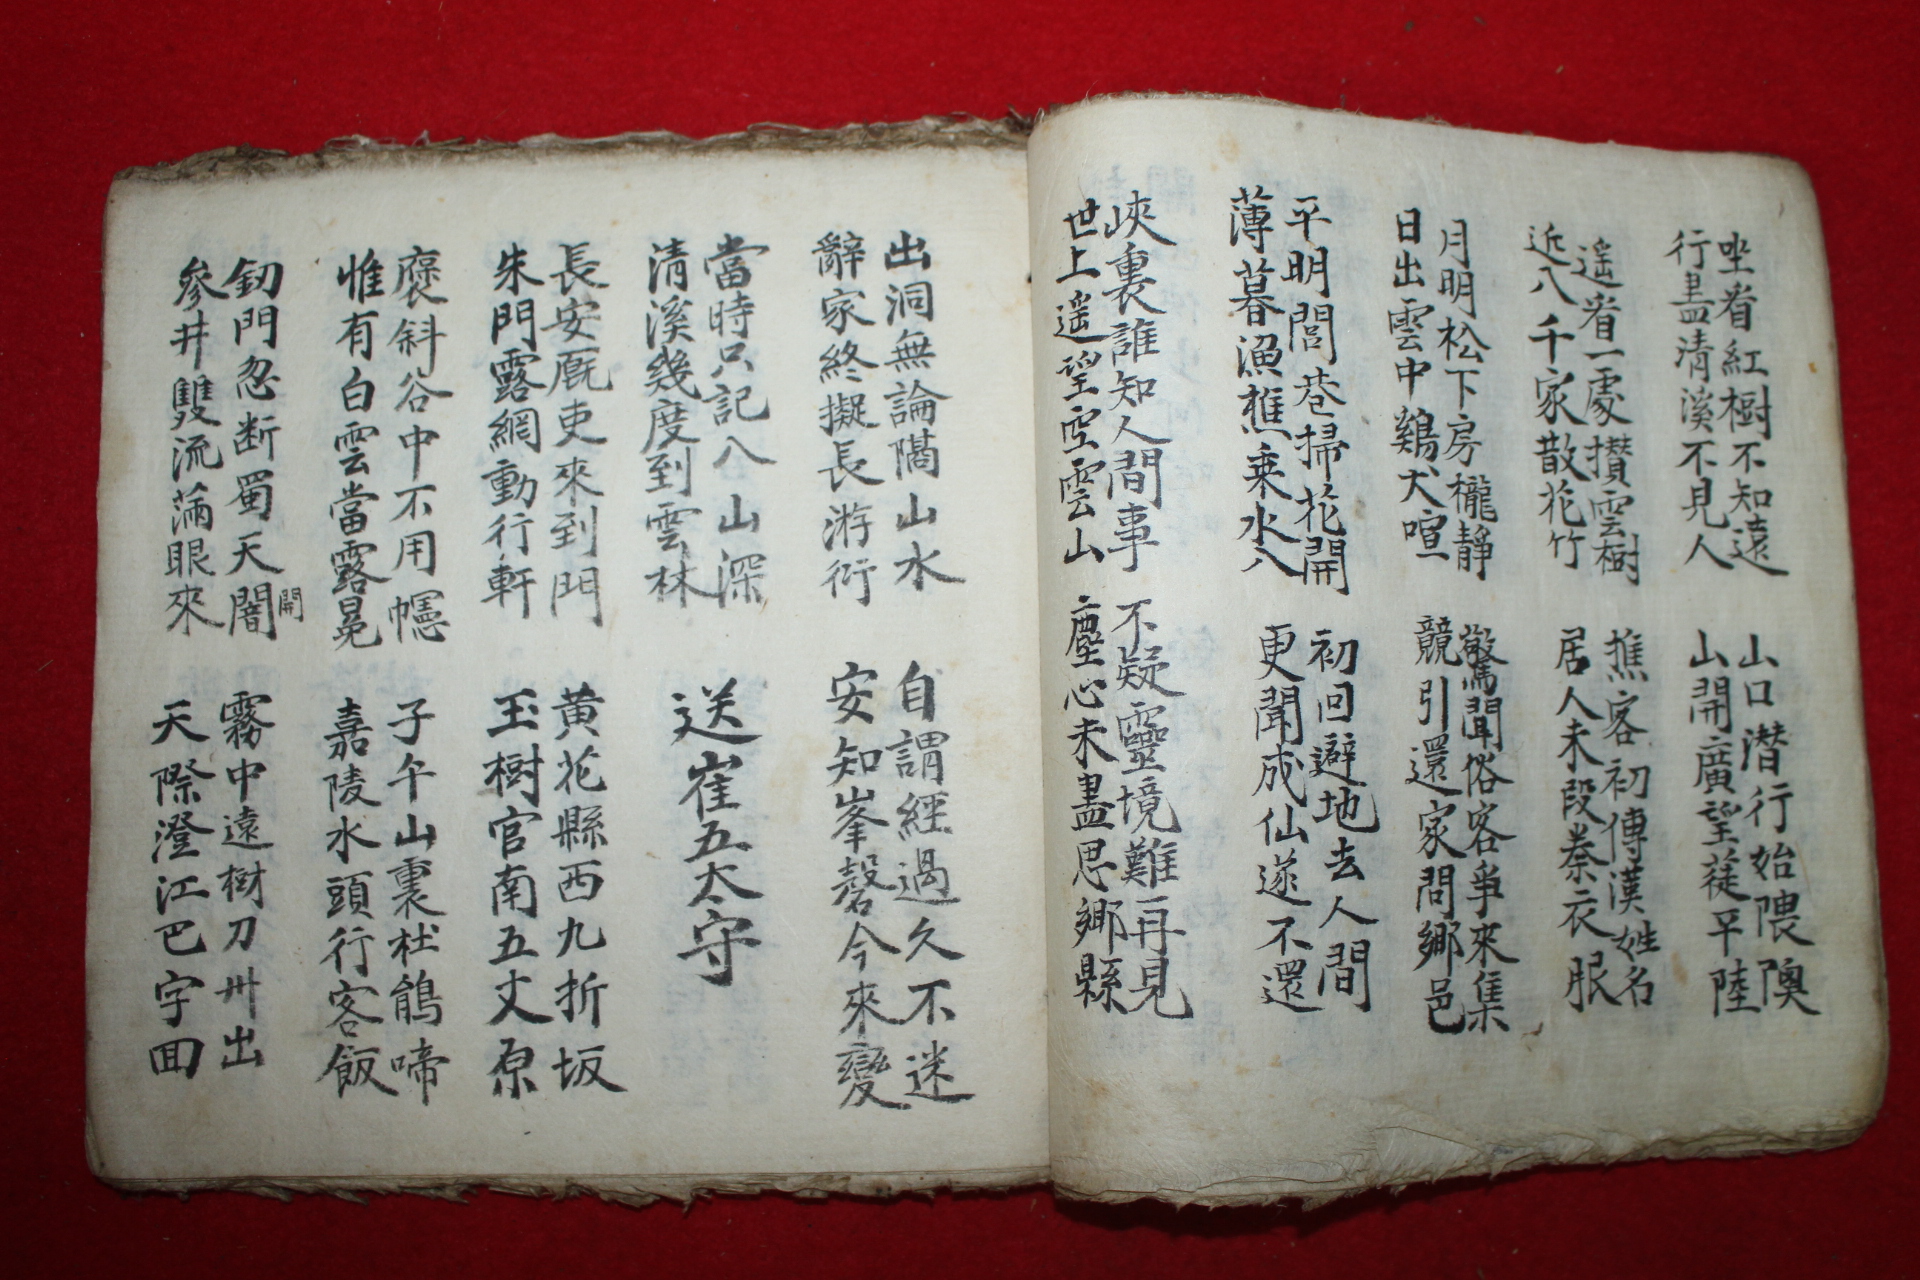 坐看紅樹不知遠
行盡清溪不見人
山口潛行始隈隩
山開廣望平陸
遙看一處攢雲樹
近入千家散花竹
樵客初傳漢姓名
居人未段秦衣服
月明松下房櫳靜
日出雲中鷄犬喧
驚聞俗客爭來集
競引還家問鄕邑
平明閭巷掃花開
薄暮漁樵乘水入
初回避地去人間
更聞成仙遂不還
峽裏誰知人間事
世上遙望空雲山
不疑靈境難再見
塵心未盡思鄕縣
出洞無論隔山水
辭家終擬長游衍
自謂經過久不迷
安知峯今來變
當時只記入山深
清溪幾度到雲林
送崔五太守
長安廐吏來到門
朱門露網動行軒
黃花縣西九折坂
玉樹官南五丈原
褒斜谷中不用幰
惟有白雲當露冕
子午山裏杜鵑啼
嘉陵水頭行客飯
釰門忽断蜀天闇
開
參井雙流滿眼來
霧中遠樹刀州出
天際澄江巴字回